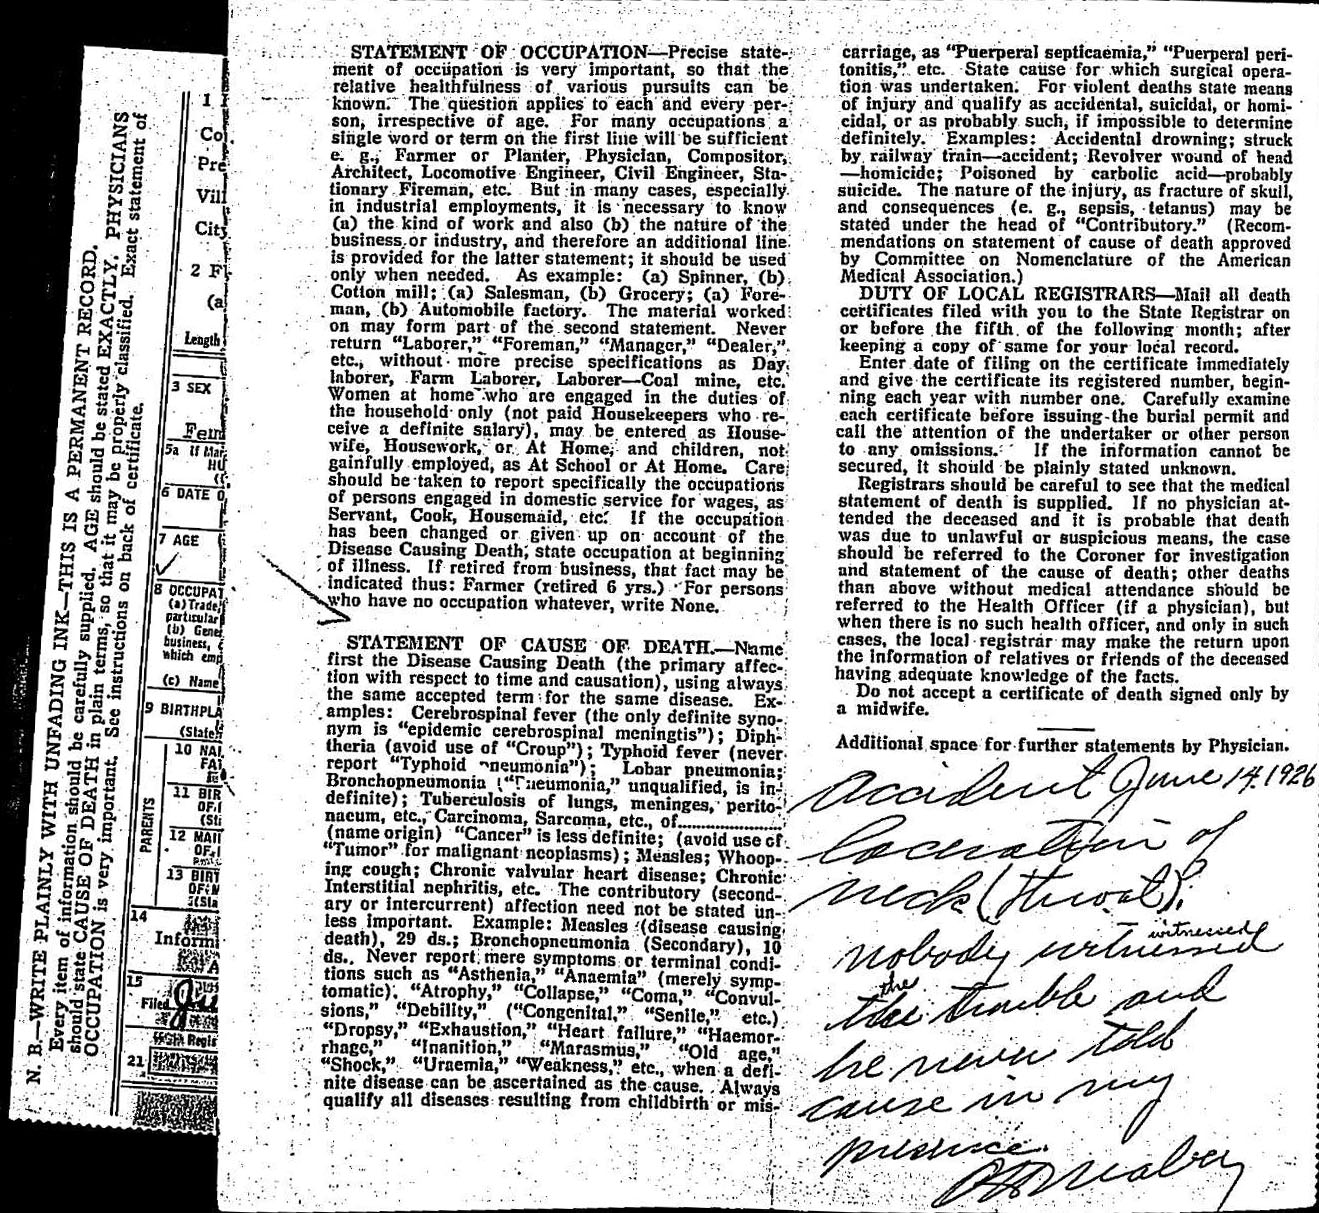 N. B.—WRITE PLAINLY WITH UNFADING INK—THIS IS A PERMANENT RECORD.
Every item of information should be carefully supplied. AGE should be stated EXACTLY. PHYSICIANS
should state CAUSE OF DEATH in plain terms, so that it may be properly classified. Exact statement of
OCCUPATION is very important. See instructions on back of certificate.
1
Co
Pre
Vill
City
2
(a
Length
3 SEX
Fem
5a If Mar
HU
6 DATE O
7 AGE
8 OCCUPAT
(a) Trade,
particular
(b) Gene
business,
which emp
(c) Name
9 BIRTHPLA
(State
PARENTS
10 NA
FA
11 BIR
OF
12 MAI
OF
13 BIRT
OF M
(Sta
14
Inform
15
Filed
Regis
21
STATEMENT OF OCCUPATION—Precise state-
ment of occupation is very important, so that the
relative healthfulness of various pursuits can be
known. The question applies to each and every per-
son, irrespective of age. For many occupations a
single word or term on the first line will be sufficient
e. g., Farmer or Planter, Physician, Compositor,
Architect, Locomotive Engineer, Civil Engineer, Sta-
tionary Fireman, etc. But in many cases, especially
in industrial employments, it is necessary to know
(a) the kind of work and also (b) the nature of the
business or industry, and therefore an additional line
is provided for the latter statement; it should be used
only when needed. As example: (a) Spinner, (b)
Cotton mill; (a) Salesman, (b) Grocery; (a) Fore-
man, (b) Automobile factory. The material worked
on may form part of the second statement. Never
return "Laborer," "Foreman," "Manager," "Dealer,"
etc., without more precise specifications as Day
laborer, Farm Laborer, Laborer—Coal mine, etc.
Women at home who are engaged in the duties of
the household only (not paid Housekeepers who re-
ceive a definite salary), may be entered as House-
wife, Housework, or At Home, and children, not
gainfully employed, as At School or At Home. Care
should be taken to report specifically the occupations
of persons engaged in domestic service for wages, as
Servant, Cook, Housemaid, etc. If the occupation
has been changed or given up on account of the
Disease Causing Death, state occupation at beginning
of illness. If retired from business, that fact may be
indicated thus: Farmer (retired 6 yrs.) For persons
who have no occupation whatever, write None.
STATEMENT OF CAUSE OF DEATH.—Name
first the Disease Causing Death (the primary affec-
tion with respect to time and causation), using always
the same accepted term for the same disease. Ex-
amples: Cerebrospinal fever (the only definite syno-
nym is "epidemic cerebrospinal meningtis"); Diph-
theria (avoid use of "Croup"); Typhoid fever (never
report "Typhoid pneumonia"); Lobar pneumonia;
Bronchopneumonia ("Pneumonia," unqualified, is in-
definite); Tuberculosis of lungs, meninges, perito-
nacum, etc., Carcinoma, Sarcoma, etc., of..................
(name origin) "Cancer" is less definite; (avoid use of
"Tumor" for malignant neoplasms); Measles; Whoop-
ing cough; Chronic valvular heart disease; Chronic
Interstitial nephritis, etc. The contributory (second-
ary or intercurrent) affection need not be stated un-
less important. Example: Measles (disease causing
death), 29 ds.; Bronchopneumonia (Secondary), 10
ds.. Never report mere symptoms or terminal condi-
tions such as "Asthenia," "Anaemia" (merely symp-
tomatic), "Atrophy," "Collapse," "Coma," "Convul-
sions," "Debility," ("Congenital," "Senile," etc.)
"Dropsy," "Exhaustion," "Heart failure," "Haemor-
rhage," "Inanition," "Marasmus," "Old age,"
"Shock," "Uraemia," "Weakness," etc., when a defi-
nite disease can be ascertained as the cause. Always
qualify all diseases resulting from childbirth or mis-
carriage, as "Puerperal septicaemia," "Puerperal peri-
tonitis," etc. State cause for which surgical opera-
tion was undertaken. For violent deaths state means
of injury and qualify as accidental, suicidal, or homi-
cidal, or as probably such, if impossible to determine
definitely. Examples: Accidental drowning; struck
by railway train—accident; Revolver wound of head
—homicide; Poisoned by carbolic acid—probably
suicide. The nature of the injury, as fracture of skull,
and consequences (e. g., sepsis, tetanus) may be
stated under the head of "Contributory." (Recom-
mendations on statement of cause of death approved
by Committee on Nomenclature of the American
Medical Association.)
DUTY OF LOCAL REGISTRARS—Mail all death
certificates filed with you to the State Registrar on
or before the fifth of the following month; after
keeping a copy of same for your local record.
Enter date of filing on the certificate immediately
and give the certificate its registered number, begin-
ning each year with number one. Carefully examine
each certificate before issuing the burial permit and
call the attention of the undertaker or other person
to any omissions. If the information cannot be
secured, it should be plainly stated unknown.
Registrars should be careful to see that the medical
statement of death is supplied. If no physician at-
tended the deceased and it is probable that death
was due to unlawful or suspicious means, the case
should be referred to the Coroner for investigation
and statement of the cause of death; other deaths
than above without medical attendance should be
referred to the Health Officer (if a physician), but
when there is no such health officer, and only in such
cases, the local registrar may make the return upon
the information of relatives or friends of the deceased
having adequate knowledge of the facts.
Do not accept a certificate of death signed only by
a midwife.
Additional space for further statements by Physician.
accident June 14. 1926
laceration of
neck (throat).
witnessed
nobody witnessed
the
the trouble and
he never told
cause in my
presence.